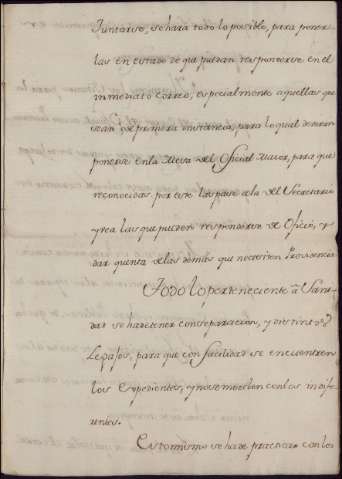 Juntarse, se hará todo lo posible, para poner
las en estado de que puedan responderse en el
inmediato correo, especialmente aquellas que
sean de primera instancia, para lo qual deberan
ponerse en la Mesa del Oficial Maior, para que
reconocidas por este las pase a la del Secretario
y vea las que pueden responderse de Oficio, y
dar quenta de las demás que necesiten Providencia
Todo lo perteneciente á Sani-
dad se ha de tener con separacion, y distintos
Legajos, para que con facilidad se encuentren
los Expedientes, y no se mezclen con los indife-
rentes.
Esto mismo se ha de practicar con los